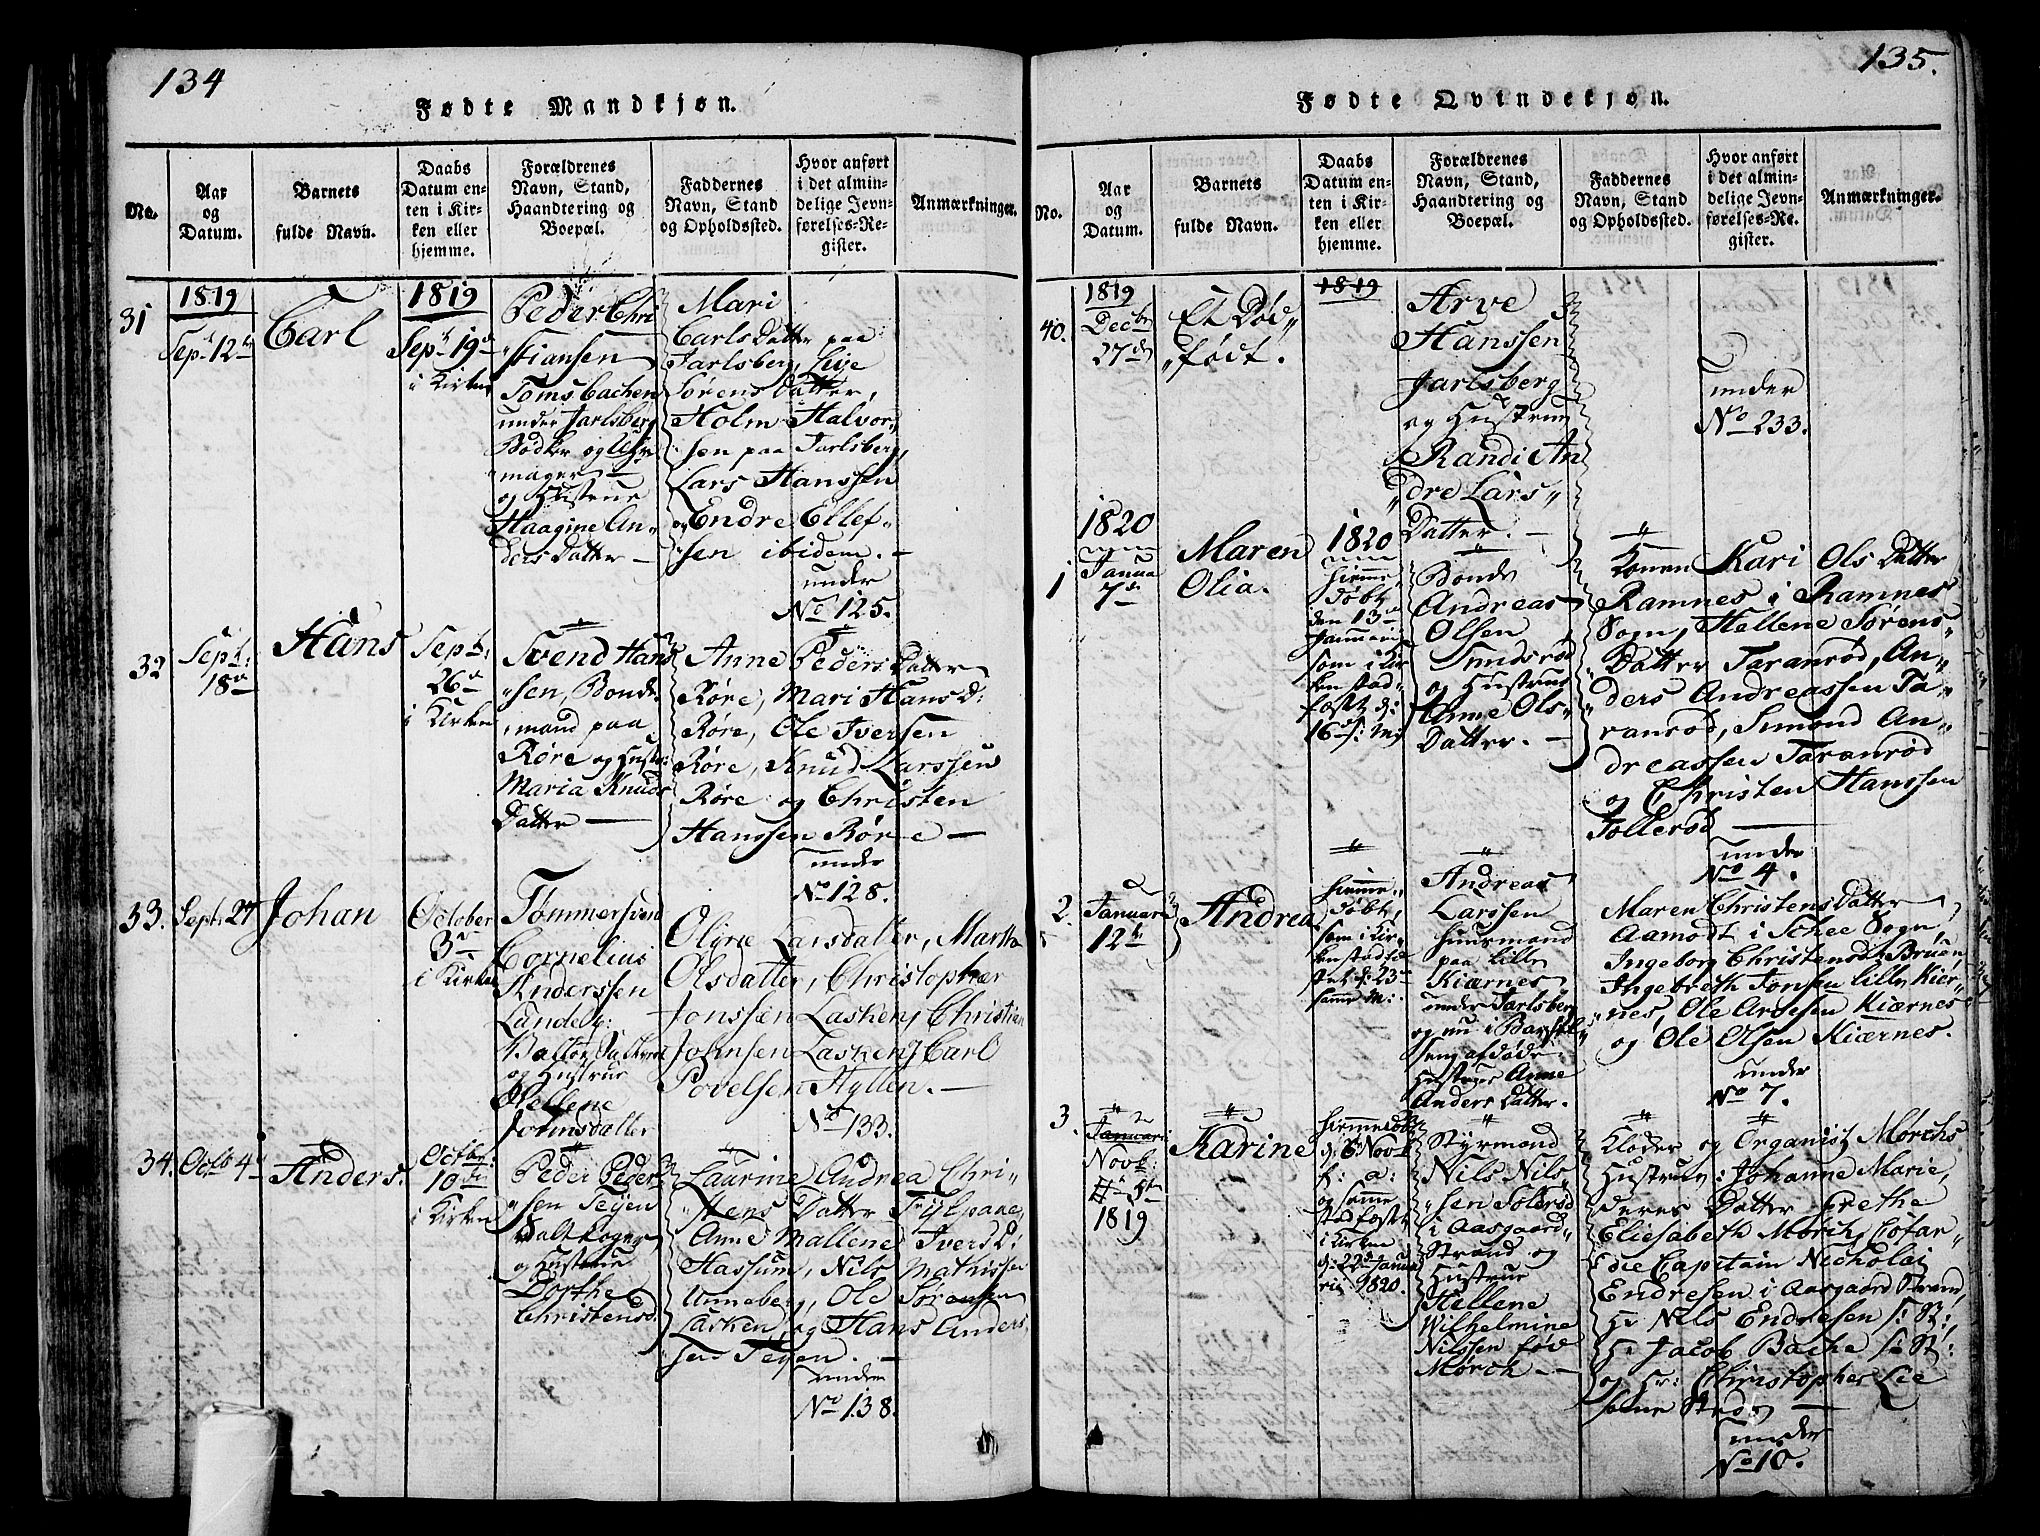 134
Fødte Mandkjøn.
No.
Aar
og
Datum.
Barnets
fulde Navn.
Daabs
Datum en-
ten i Kir-
ken eller
hjemme.
Forældrenes
Navn, Stand,
Haandtering og
Boepæl.
Faddernes
Navn, Stand
og Opholdssted.
Hvor anført
i det almin-
delige Jevn-
førelses-Re-
gister.
Anmærkninger.
31
1819
Sept 12te
Carl
1819
Sept 19de
i Kirken
Peder Chri
stiansen
Tomsbachen
under Jarlsberg
Bødker og
mager
og Hustrue
Haagine An-
ders Datter
Mari
Carls Datter paa
Jarlsberg, Lize
Sørens Datter,
Holm Halvor
sen paa Jarlsberg,
Lars Hanssen
Endre Ellef-
sen ibidem.
under
No 125.
32
Sept:
18de
Hans
Sept:
26de
i Kirken
Svend Hans
sen, Bonde
mand paa
Røre og Hustr:
Maria Knuds
Datter
Anne Peders Datter
Røre, Mari Hans D:
Røre, Ole Iversen
Røre, Knud Larssen
Røre og Christen
Hanssen Røre
under
No 128.
33.
Sept: 27
Johan
October
3de
i Kirken
Tømmersvend
Cornelius
Anderssen
og Hustrue
Hellene
Johnsdatter
Olğrie Larsdatter, Martha
Olsdatter, Christopher
Jonssen Lasken, Christian
Johnsen Lasken, Carl
Povelsen Hyllen.
No 133.
34.
Octb 4de
Anders.
Octbr:
10de
i Kirken
Peder Peder
sen Teyen
Saltkoger
og Hustrue
Dorthe
Christensd.
Laurine Andrea Chri-
stens Datter Fÿlpane,
Anne Mallene Ivers D:
Hassum, Nils Mathissen
Unneberg, Ole Sørensen
Lasken og Hans Anders
sen Teyen.
under
No 138.
135.
Fødte Qvindekjøn.
No.
Aar
og
Datum.
Barnets
fulde Navn.
Daabs
Datum en-
ten i Kir-
ken eller
hjemme.
Forældrenes
Navn, Stand,
Haandtering og
Boepæl.
Faddernes
Navn, Stand
og Opholdssted.
Hvor anført
i det almin-
delige Jevn-
førelses-Re-
gister.
Anmærkninger.
40.
1819
Decbr
27de
Et Død
født.
1819
Arve
Hanssen
Jarlsberg
og Hustrue
Randi An
dre Lars
Datter.
under
No 233.
1
1820
Janua
7de
Maren
Olia.
1820
hiemme
døbt
den 13de
Januari
som i Kir
ken stad-
fæst d:
16de s: M:
Bonde
Andreas
Olsen
Sundsrød
og Hustrue
Anne Ols-
Datter.
Konen Kari Ols Datter
Ramnes i Ramnes
Sogn, Hellene Sørens
Datter Taranrød, An-
ders Andreassen Ta-
ranrød, Simond An-
dreassen Taranrød
og Christen Hanssen
Tollerød
under
No 4.
2.
Januari
12te
Andrea
hiemme
døbt,
som i Kir-
ken stadfæ
stet d: 23de
samme M:
Andreas
Larssen
Huusmand
paa lille
Kiærnes
under Jarlsberg
og nu i Barsel
seng afdøde
Hustrue Anne
Anders Datter.
Maren Christens Datter
Aamodt i Schee Sogn,
Ingeborg Christensd: Bruen
Ingebreth Jonsen lille Kier-
nes, Ole Arnesen Kiærnes
og Ole Olsen Kiærnes.
under
No 7.
3.
Januari
Novbr:
5te
1819
Karine
hiemmedøbt
d: 6 Novbr
f: a:
og samme
stadfæstet
i Kirken
d: 22de Janua
ri: 1820.
Styrmand
Nils Nils
sen Solerød
i Aasgaard
Strand og
Hustrue
Hellene
Wilhelmine
Nilssen fød
Mørch
Kloder og Organist Mørchs
Hustrue: Johanne Marie,
deres Datter Grethe
Eliesabeth Mørch, Cofar-
die Capitain Nicholai
Endresen i Aasgaard Strand,
Hr Nils Endresen s: St:,
Hr Jacob Bache s: St:
og Hr: Christopher Lie
samme Sted
under
No 10.